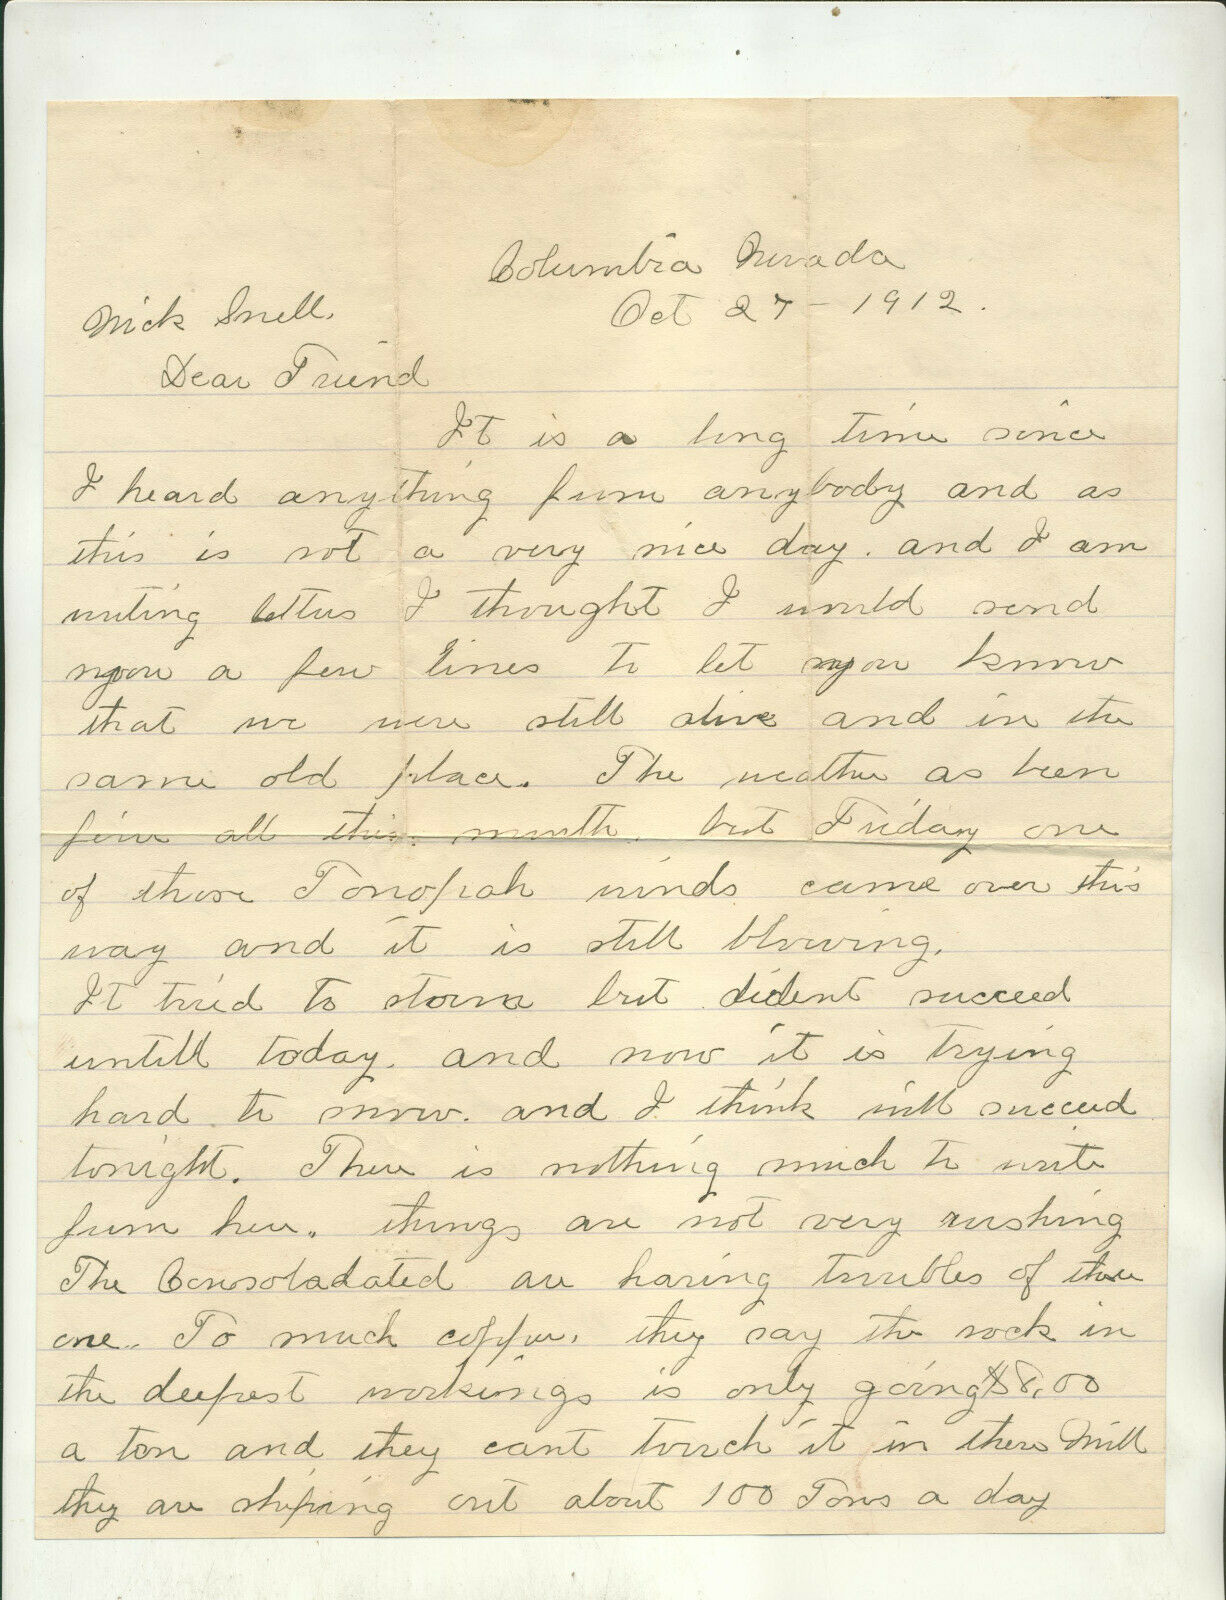 Columbia Nevada
Oct 27 - 1912.
Nick Snell.
Dear Friend
It is a long time since
I heard anything from anybody and as
this is not a very nice day. and I am
writing letters I thought I would send
you a few lines to let you know
that we were still alive and in the
same old place. The weather as been
fine all this month. but Friday one
of those Tonopah winds came over this
way and it is still blowing.
It tried to storm but dident succeed
untill today. and now it is trying
hard to snow. and I think will succeed
tonight. There is nothing much to write
from here. things are not very rushing
The Consoladated are having troubles of there
one.. To much copper. they say the rock in
the deepest workings is only going $8.00
a ton and they cant touch it in there Mill
they are shiping out about 100 Tons a day